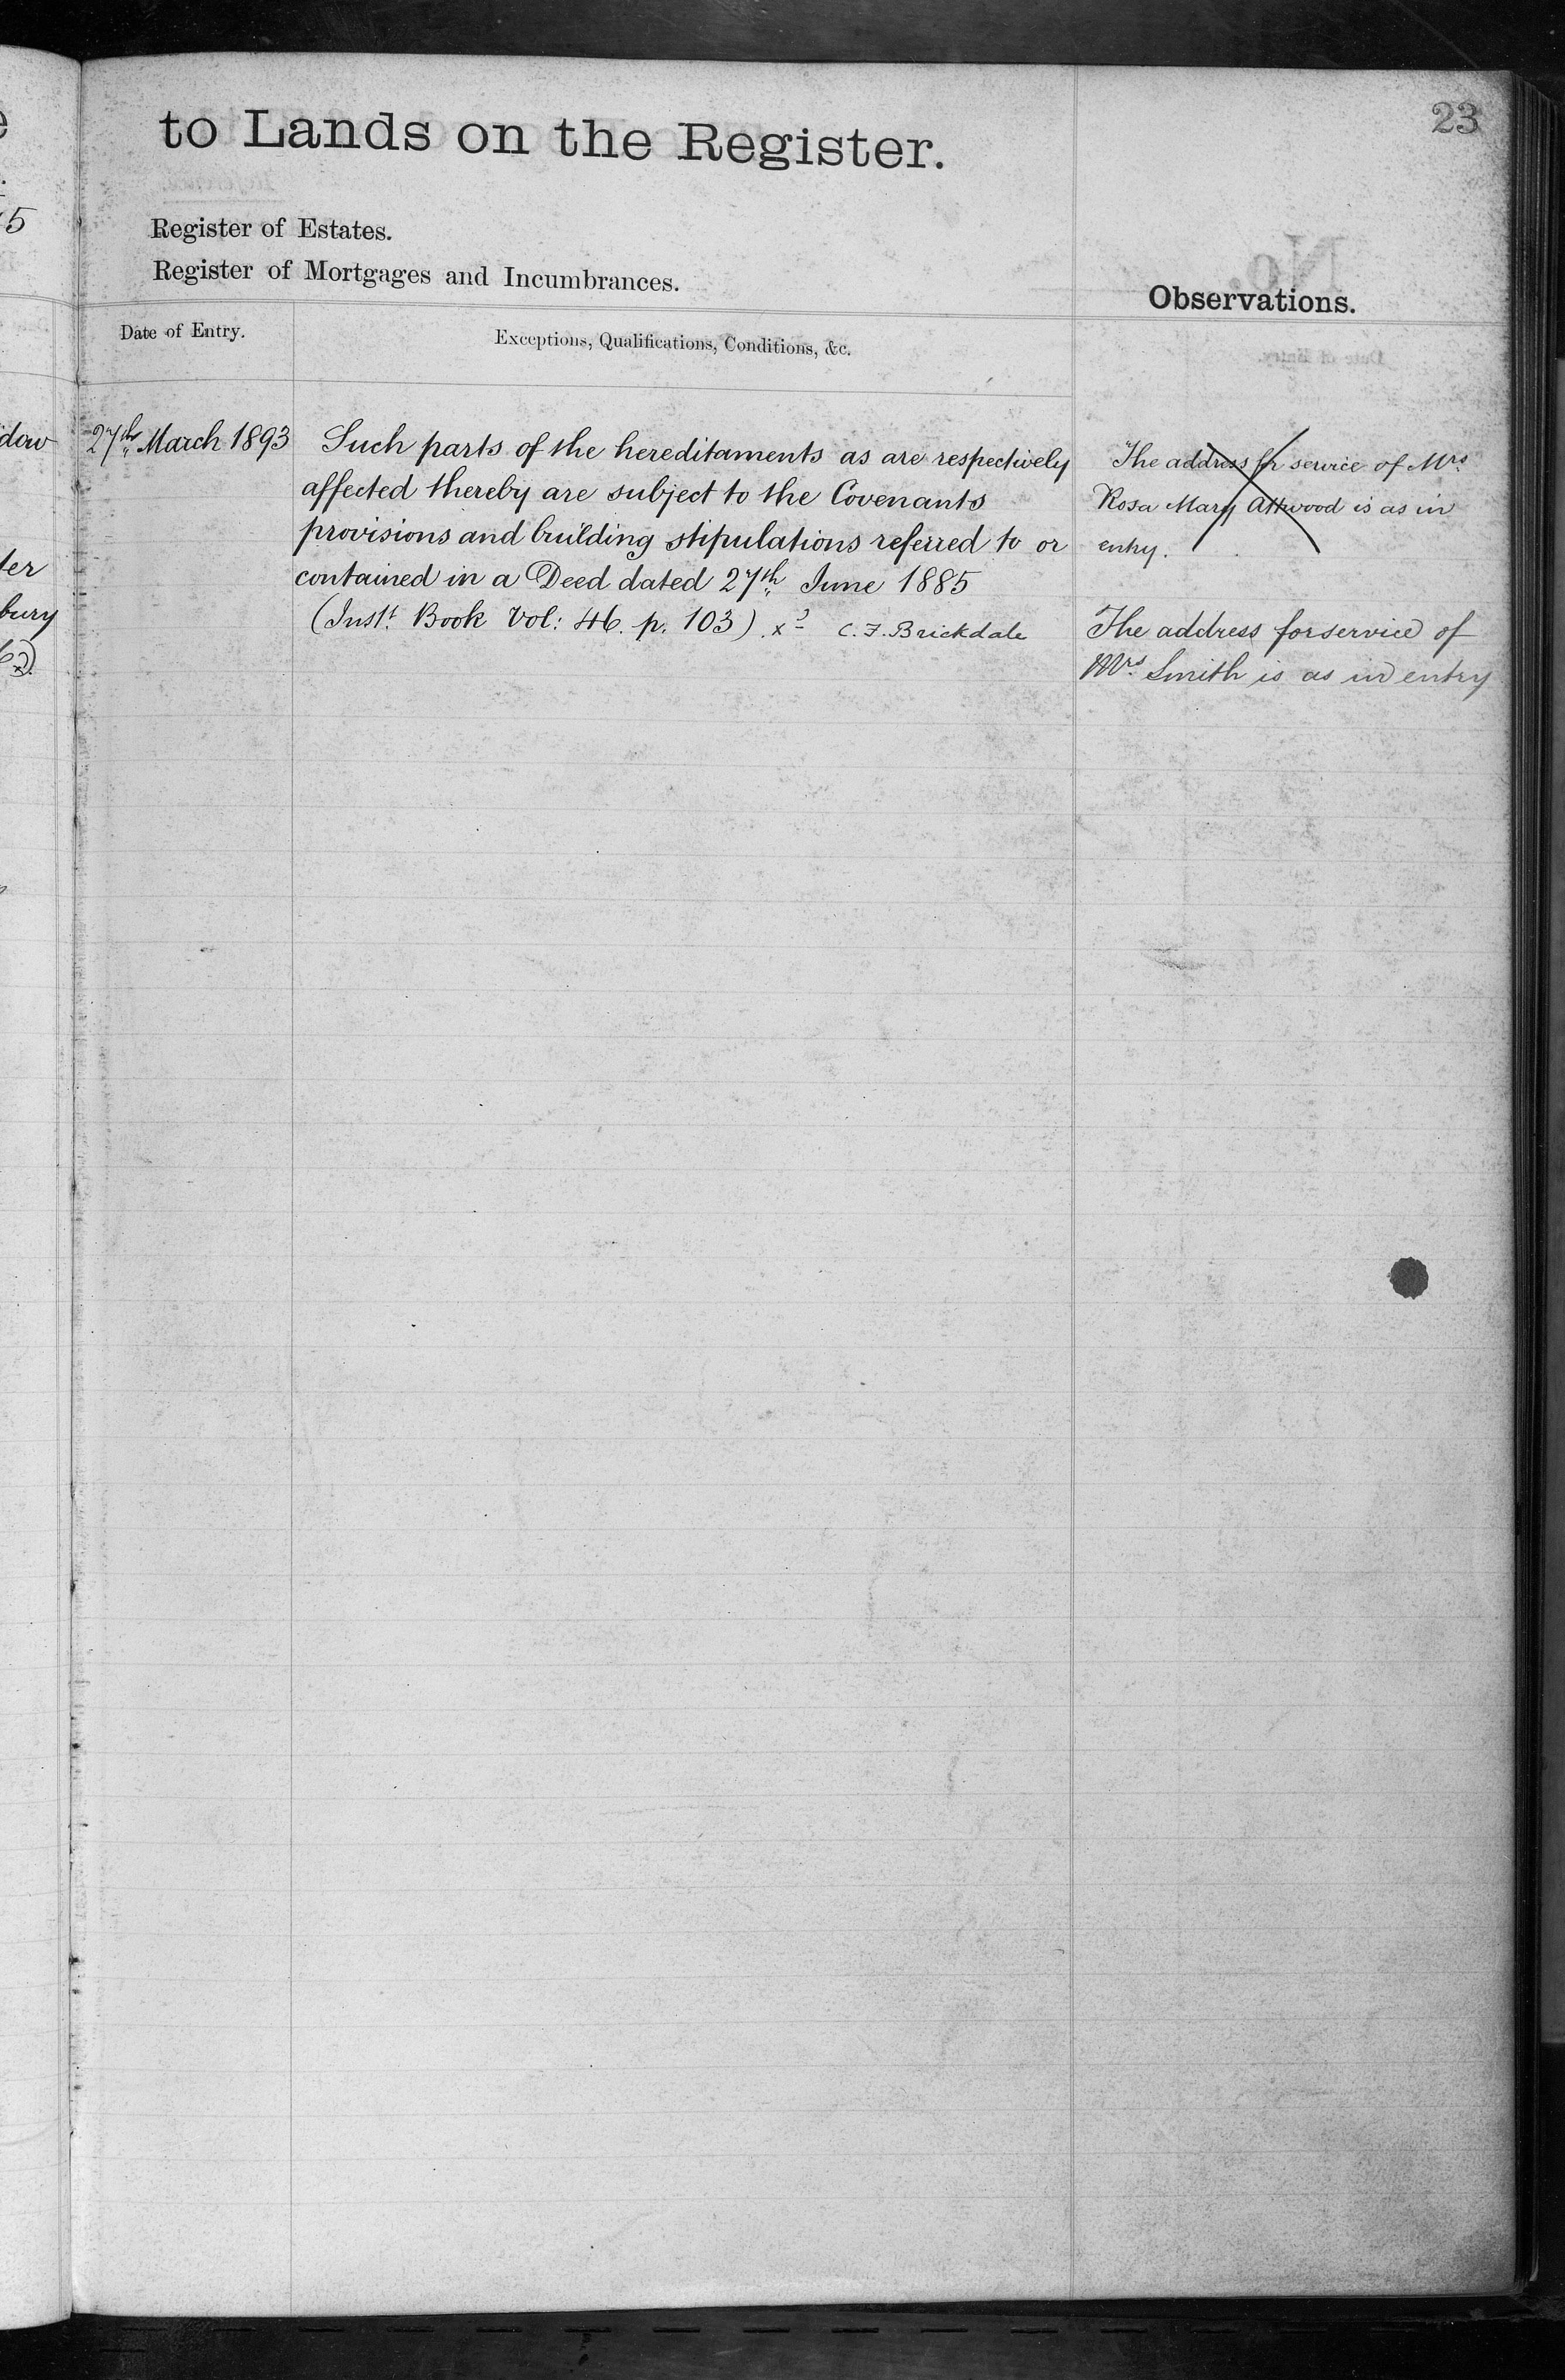 23
to Lands on the Register.
Register of Estates.
Register of Mortgages and Incumbrances.
Observations.
Date of Entry.
Exceptions, Qualifications, Conditions, &c.
27th March 1893
Such parts of the hereditaments as are respectively
affected thereby are subject to the Covenants
provisions and building stipulations referred to or
contained in a Deed dated 27th June 1885
(Inst: Book Vol: 46. p. 103). C. F. Brickdale
The address for service of Mrs
Rosa Mary Attwood is as in
entry.
The address for service of
Mrs. Smith is as in entry
5
dow
ter
bury